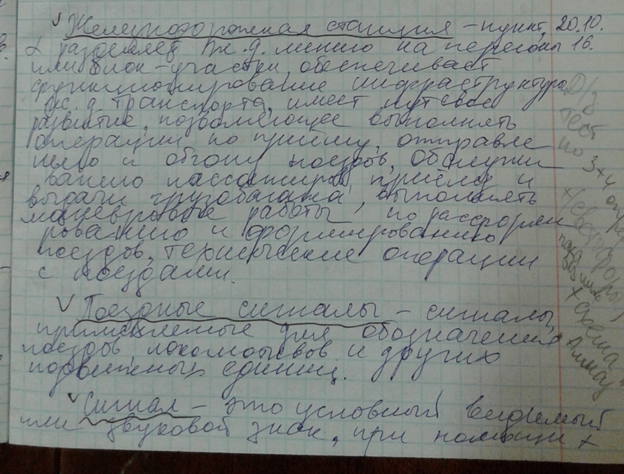 √ Железнодорожная станция – пункт, 20.10.
разделяет ж.д. линию на перегоны 16.
или блок-участки, обеспечивает
функционирование инфраструктуры
ж.д. транспорта, имеет путевое
развитие, позволяющее выполнять
операции по приёму, отправле
нию и обгону поездов, обслужи
ванию пассажиров, приёма и
выдачи грузобагажа, выполнять
маневровые работы по расформи
рованию и формированию
поездов, технические операции
с поездами.
√ Поездные сигналы – сигналы,
применяемые для обозначения
поездов, локомотивов и других
подвижных единиц.
√ Сигнал – это условный видимый
или звуковой знак, при помощи
Д/з
тест
по 3×4